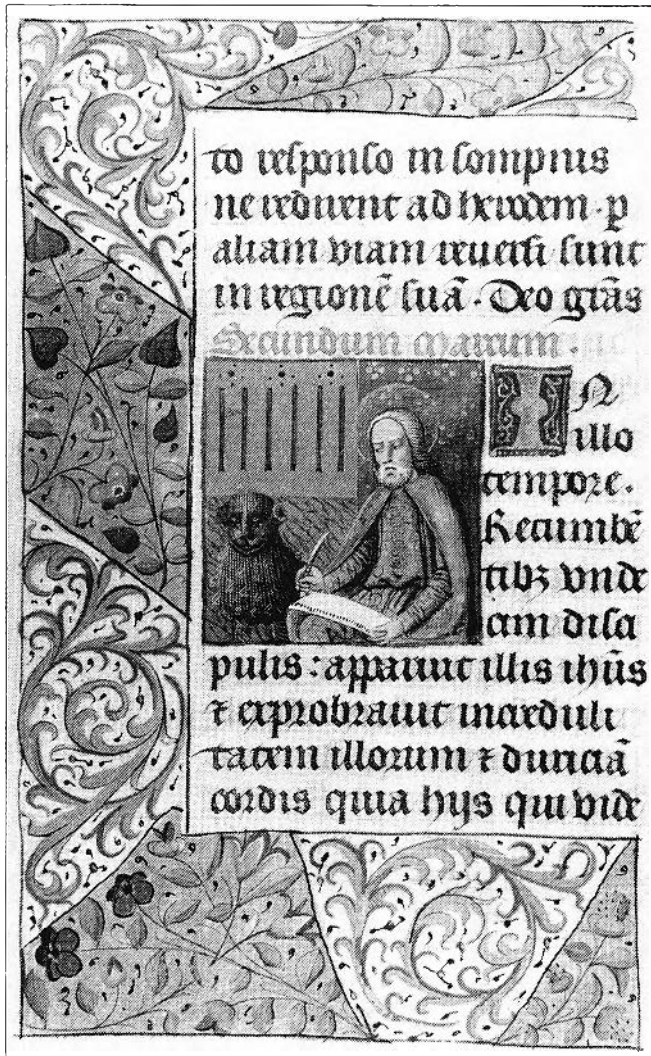 to responso in sompnis
ne redirent ad herodem · p
aliam viam reversi sunt
in regionē suā · Deo grās
Secundum marcum ·
IN
illo
tempore ·
Recumbē
tibꝫ unde
cim disci
pulis : apparuit illis ihūs
⁊ exprobravit incređuli
tatem illorum ⁊ duriciā
cordis quia hijs qui vide